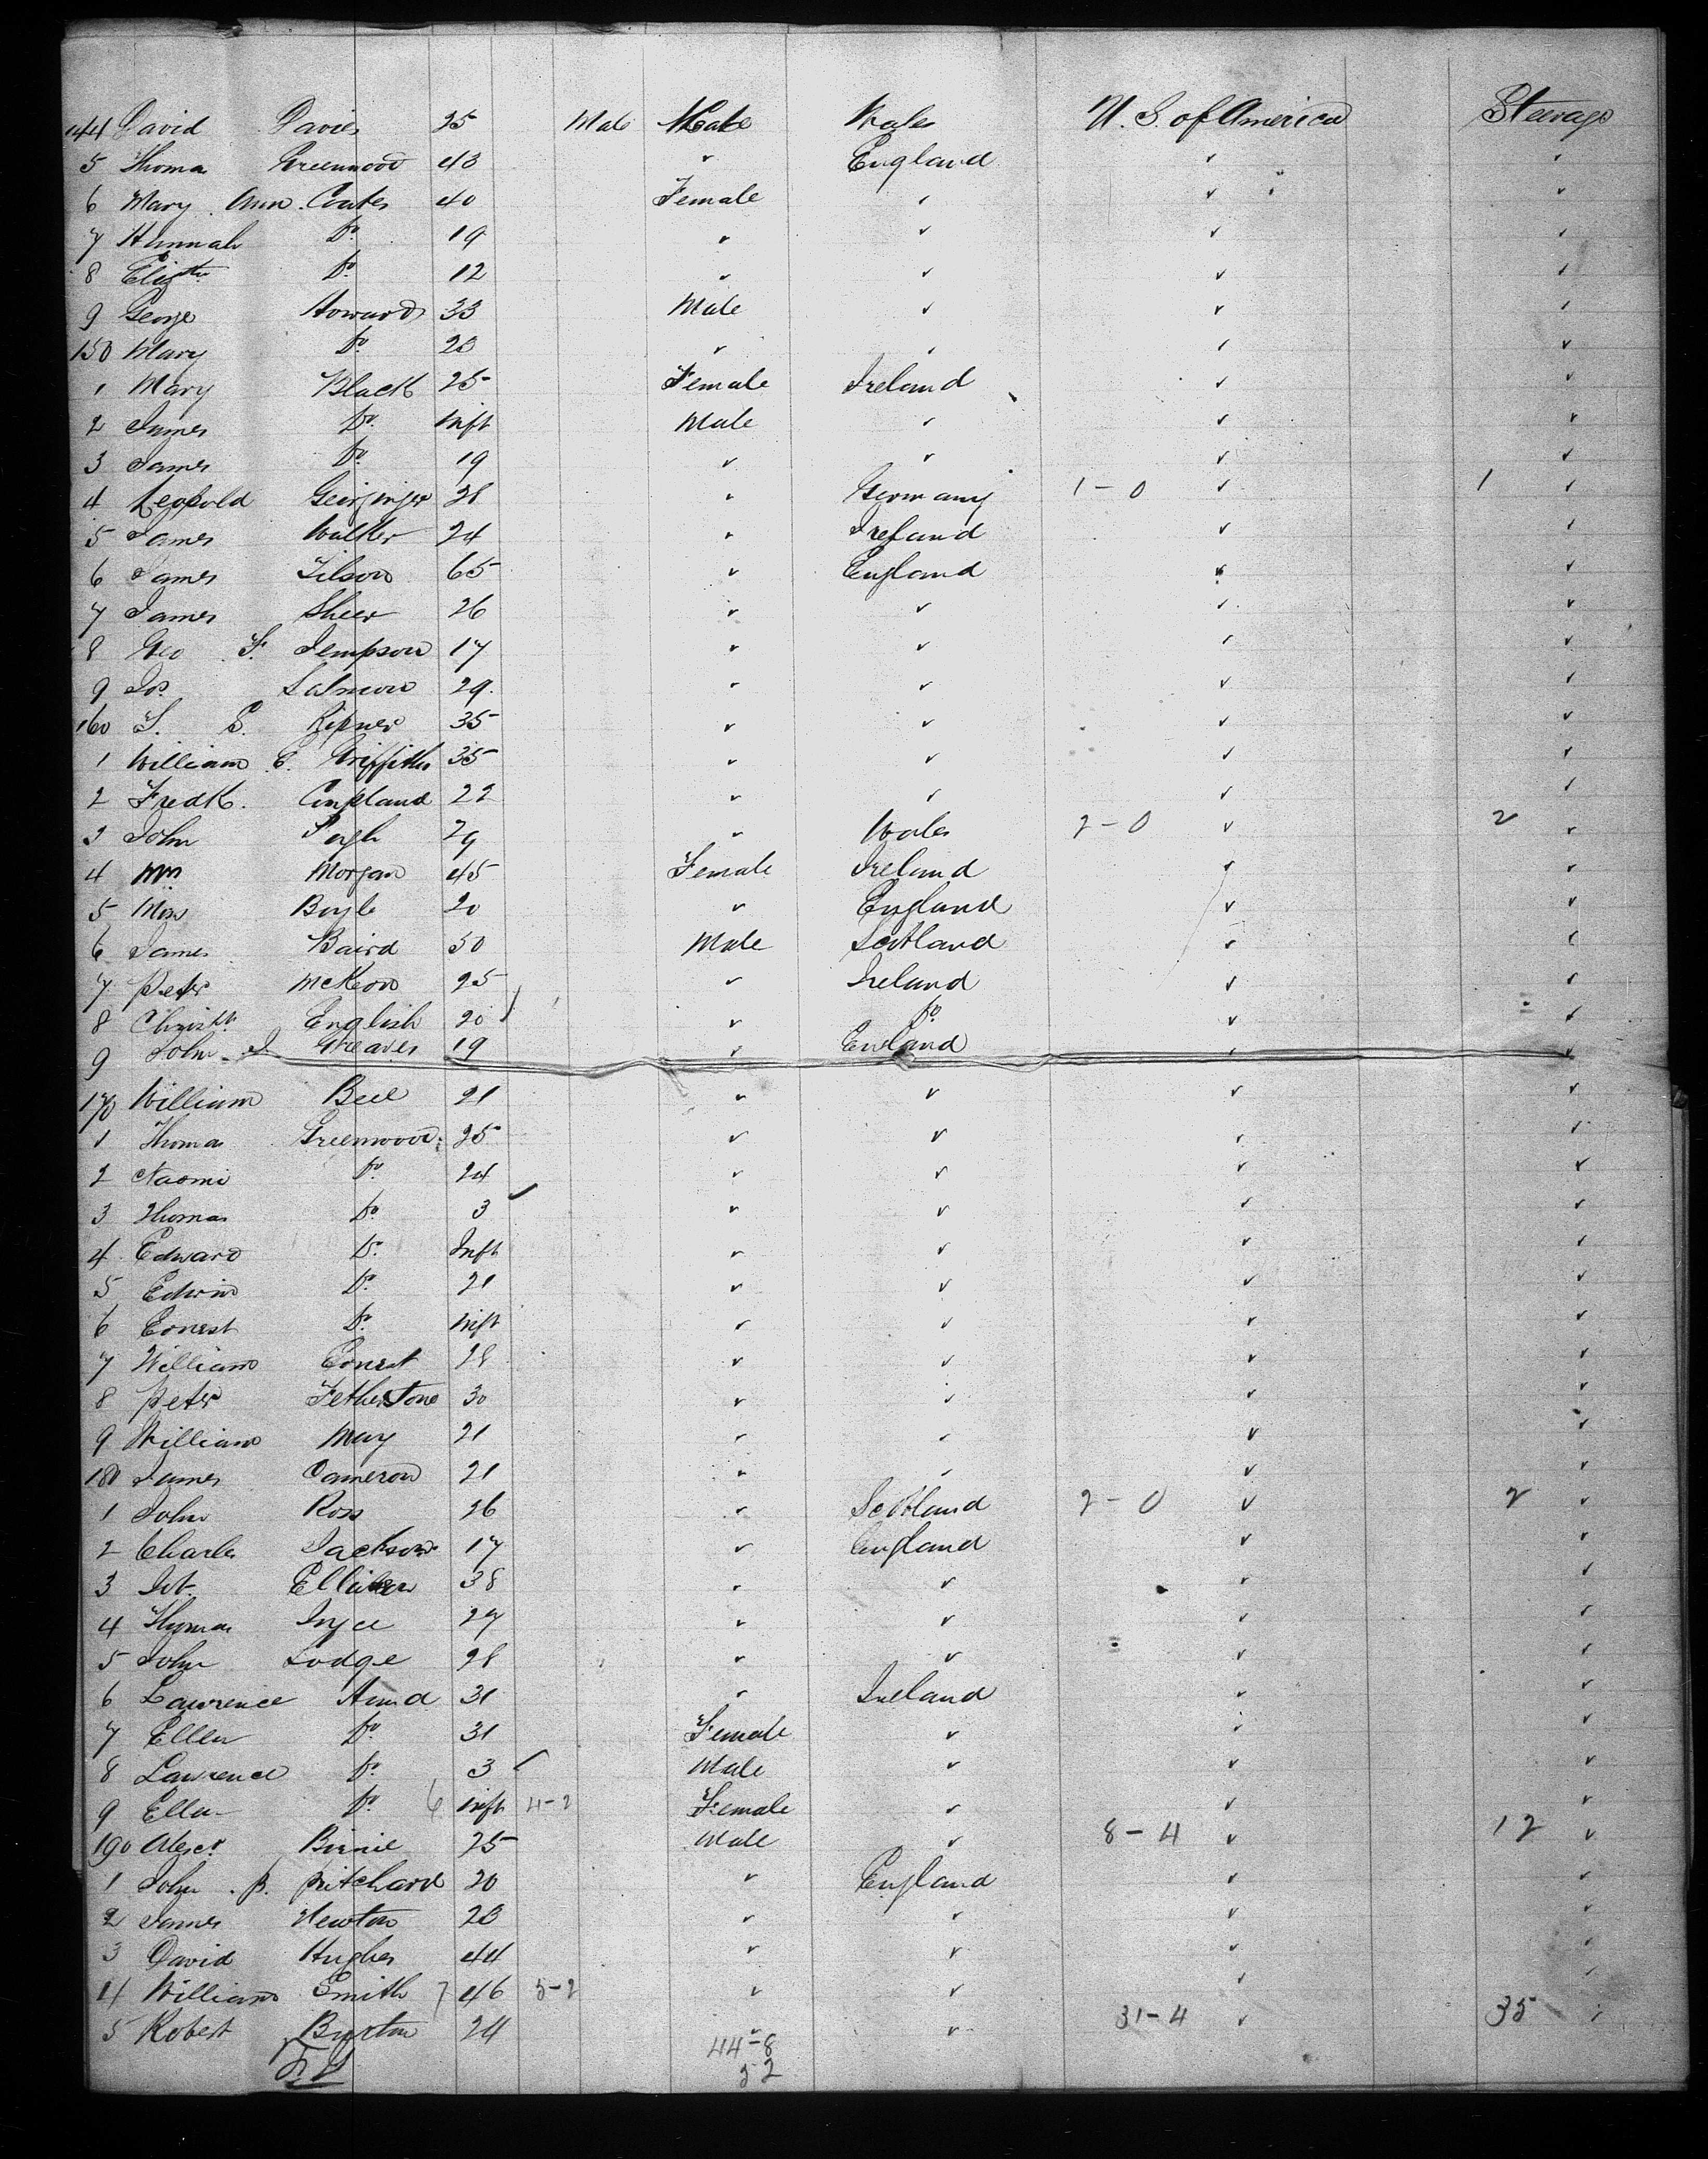 144 David Davies 25 Male Male Wales U. S. of America Steerage
5 Thomas Greenwood 43 " England " "
6 Mary Ann Coates 40 Female " " "
7 Hannah Do. 19 " " " "
8 Elizth Do. 12 " " " "
9 George Howard 33 Male " " "
150 Mary Do. 23 " " " "
1 Mary Black 25 Female Ireland " "
2 James Do. Inft Male " " "
3 James Do. 19 " " " "
4 Leopold 28 " Germany 1-0 " 1 "
5 James Walker 24 " Ireland " "
6 James Tilson 65 " England " "
7 James Sheer 26 " " " "
8 Geo F. Jempson 17 " " " "
9 Jos. Salmon 29 " " " "
160 S. 35 " " " "
1 William C. Griffiths 35 " " " "
2 Fredk. Coupland 22 " " " "
3 John Pugh 29 " Wales 2-0 " 2 "
4 Mrs Morgan 45 Female Ireland " "
5 Mrs Boyle 20 " England " "
6 James Baird 50 Male Scotland " "
7 Peter McKeon 25 " Ireland " "
8 Christr. English 20 " Do " "
9 John J Greaves 19 " England " "
170 William Bell 21 " " " "
1 Thomas Greenwood 25 " " " "
2 Naomi Do. 24 " " " "
3 Thomas Do. 3 ✓ " " " "
4 Edward Do. Inft " " " "
5 Edwin Do. 21 " " " "
6 Ernest Do. Inft " " " "
7 William Ernest 28 " " " "
8 Peter Fetherstone 30 " " " "
9 William May 21 " " " "
180 James Cameron 21 " " " "
1 John Ross 26 " Scotland 2-0 " 2 "
2 Charles Jackson 17 " England " "
3 38 " " " "
4 Thomas Joyce 27 " " " "
5 John Lodge 28 " " " "
6 Lawrence 31 " Ireland " "
7 Ellen Do 31 Female " " "
8 Lawrence Do. 3 ✓ Male " " "
9 Ellen Do. 6 Inft 4-2 Female " " "
190 Alexr. Birnie 25 Male " 8-4 " 12 "
1 John P. Pritchard 20 " England " "
2 James Newton 23 " " " "
3 David Hughes 44 " " " "
4 William Smith 7 46 5-2 " " " "
5 Robert Burton 24 " " 31-4 " 35 "
44-8
52